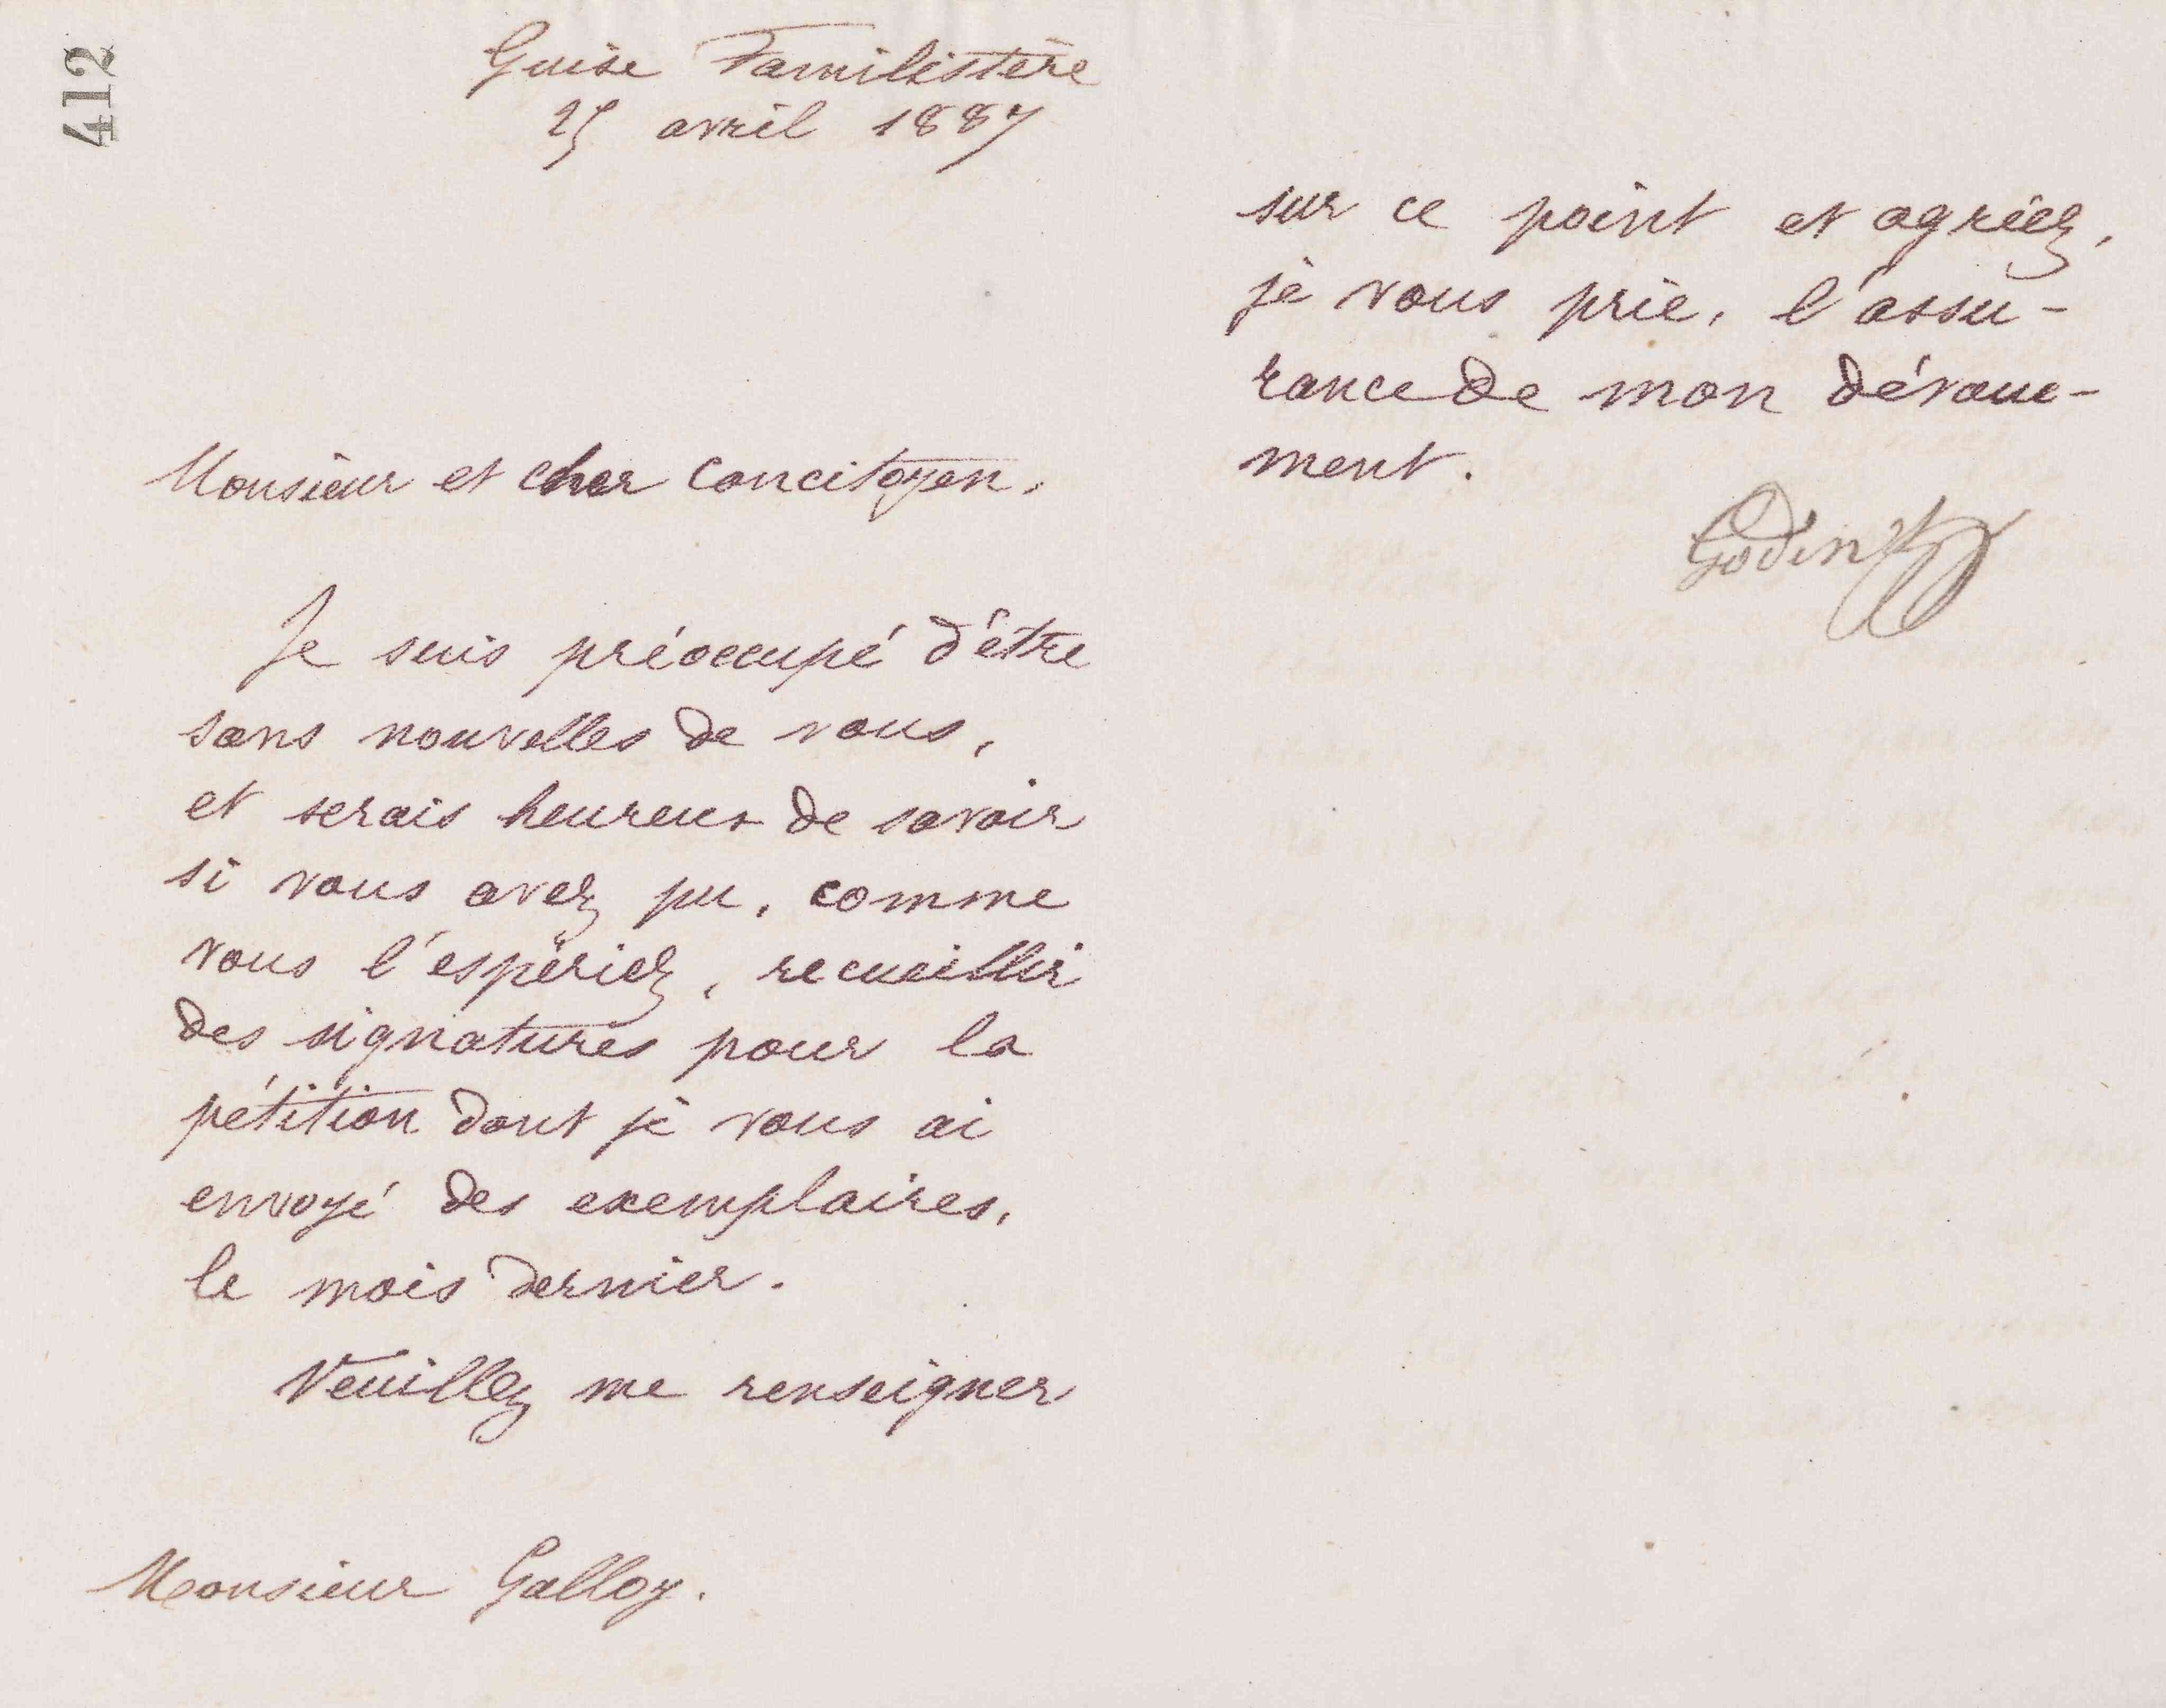 412
Guise Familistère
25 avril 1887
Monsieur et cher concitoyen,
Je suis préoccupé d'être
sans nouvelles de vous,
et serais heureux de savoir
si vous avez pu, comme
vous l'espériez, recueillir
des signatures pour la
pétition dont je vous ai
envoyé des exemplaires,
le mois dernier.
Veuillez me renseigner
Monsieur Galloy.
sur ce point et agréez,
je vous prie, l'assu-
rance de mon dévoue-
ment.
Godin